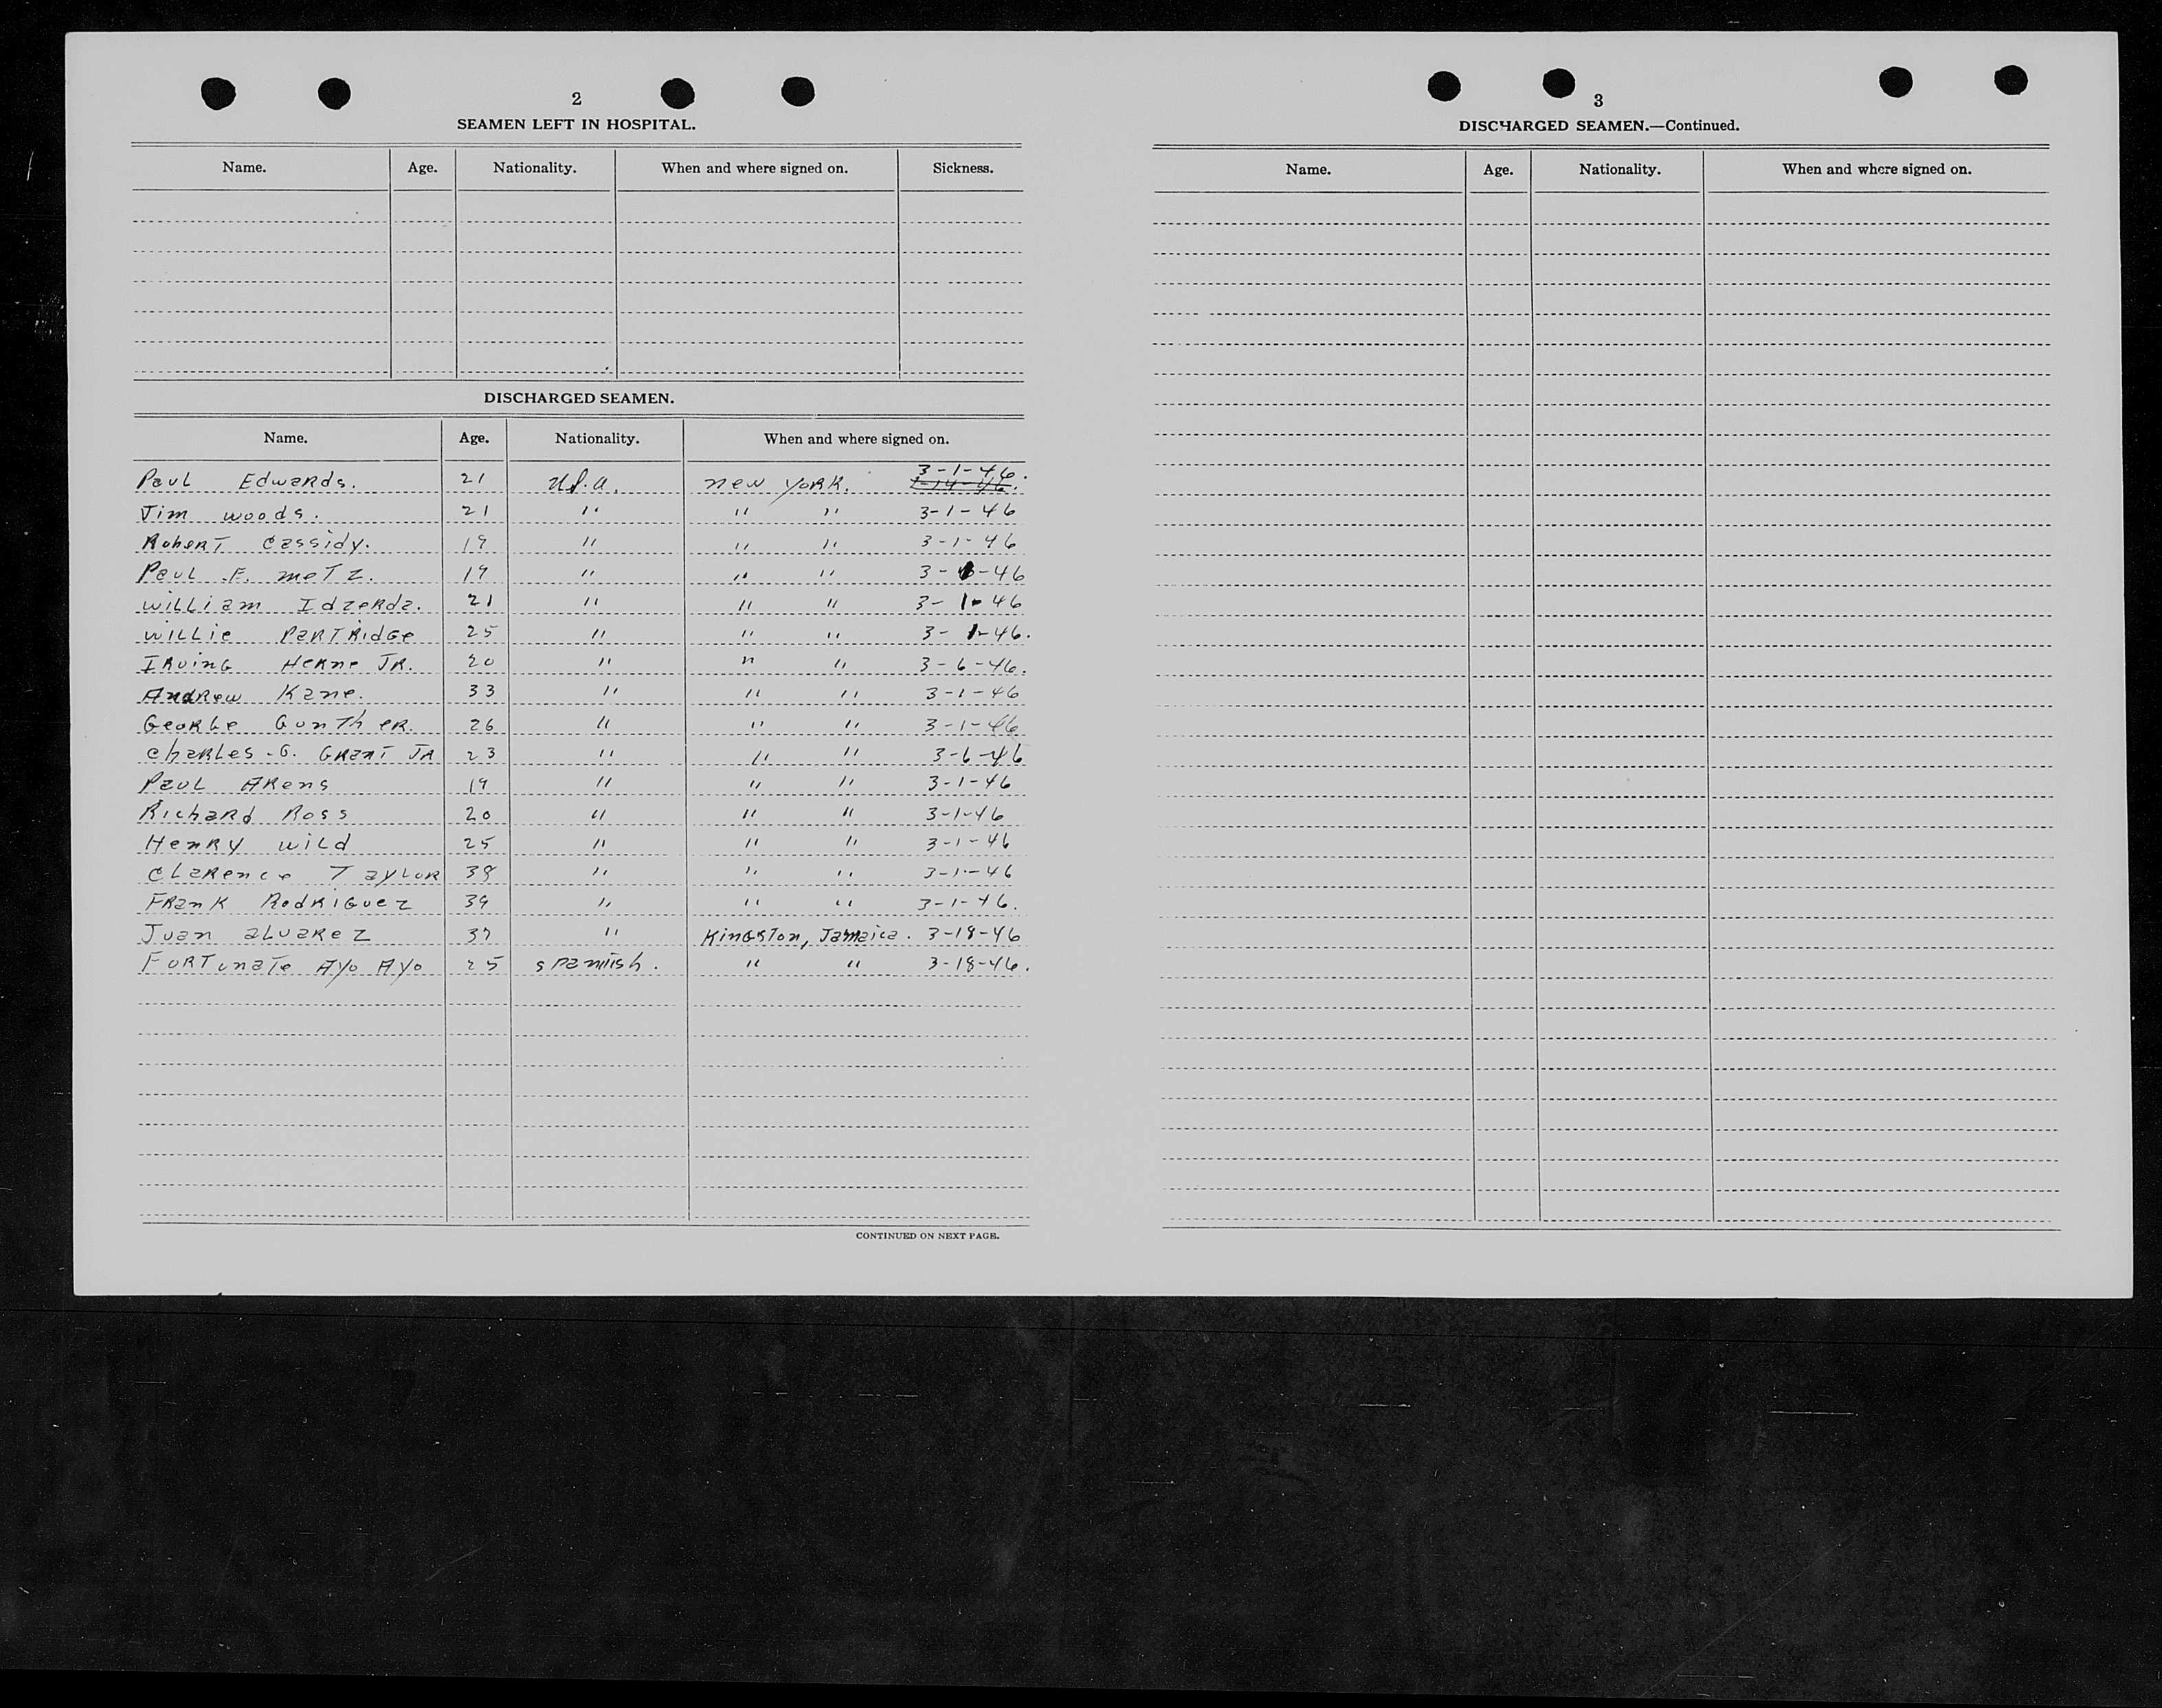 2
SEAMEN LEFT IN HOSPITAL.
Name. Age. Nationality. When and where signed on. Sickness.
DISCHARGED SEAMEN.
Name. Age. Nationality. When and where signed on.
Paul Edwards. 21 U.S.A. New York. 3-1-46.
Jim Woods. 21 " " " 3-1-46
Robert Cassidy. 19 " " " 3-1-46
Paul F. Metz. 19 " " " 3-1-46
William Idzerda. 21 " " " 3-1-46
Willie Partridge 25 " " " 3-1-46.
Irving Herne Jr. 20 " " " 3-6-46.
Andrew Kane. 33 " " " 3-1-46
George Gunther. 26 " " " 3-1-46
Charles G. Grant Jr 23 " " " 3-6-46
Paul Arens 19 " " " 3-1-46
Richard Ross 20 " " " 3-1-46
Henry Wild 25 " " " 3-1-46
Clarence Taylor 38 " " " 3-1-46
Frank Rodriguez 39 " " " 3-1-46.
Juan Alvarez 37 " Kingston, Jamaica. 3-18-46
Fortunate Ayo Ayo 25 Spanish. " " 3-18-46.
CONTINUED ON NEXT PAGE.
3
DISCHARGED SEAMEN.—Continued.
Name. Age. Nationality. When and where signed on.